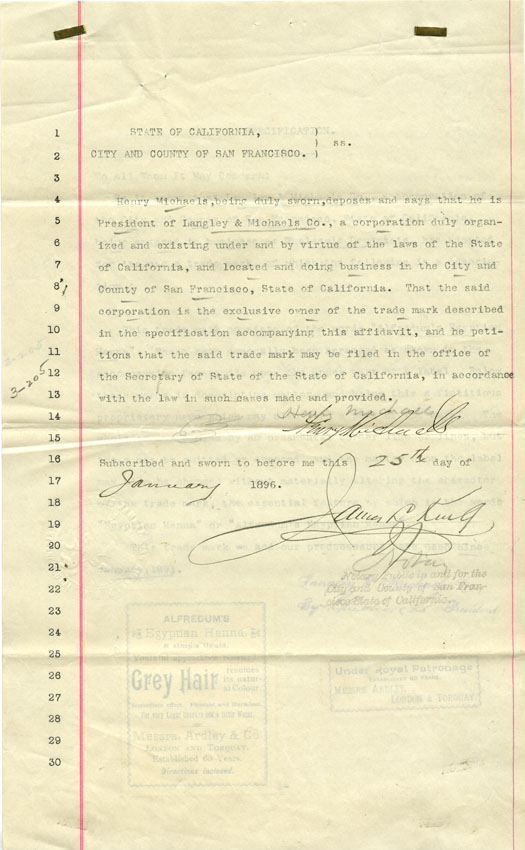 1 STATE OF CALIFORNIA, )
) ss.
2 CITY AND COUNTY OF SAN FRANCISCO. )
3
4 Henry Michaels,being duly sworn,deposes and says that he is
5 President of Langley & Michaels Co., a corporation duly organ-
6 ized and existing under and by virtue of the laws of the State
7 of California, and located and doing business in the City and
8 County of San Francisco, State of California. That the said
9 corporation is the exclusive owner of the trade mark described
10 in the specification accompanying this affidavit, and he peti-
11 tions that the said trade mark may be filed in the office of
3-205
12 the Secretary of State of the State of California, in accordance
3-205
13 with the law in such cases made and provided.
14 Henry Michaels
15 Henry Michaels
16 Subscribed and sworn to before me this 25th day of
17 January 1896.
18
19 James
20
21 Notary Public in and for the
22 City and County of San Fran-
cisco State of California.
23
24 ALFREDUM'S
Egyptian Henna
25
26 Grey Hair
restores
its natur-
al Colour.
Under Royal Patronage
Messrs Ardley,
London & Torquay.
27
28
29 Messrs. Ardley & Co
London and Torquay.
30 Established 60 Years.